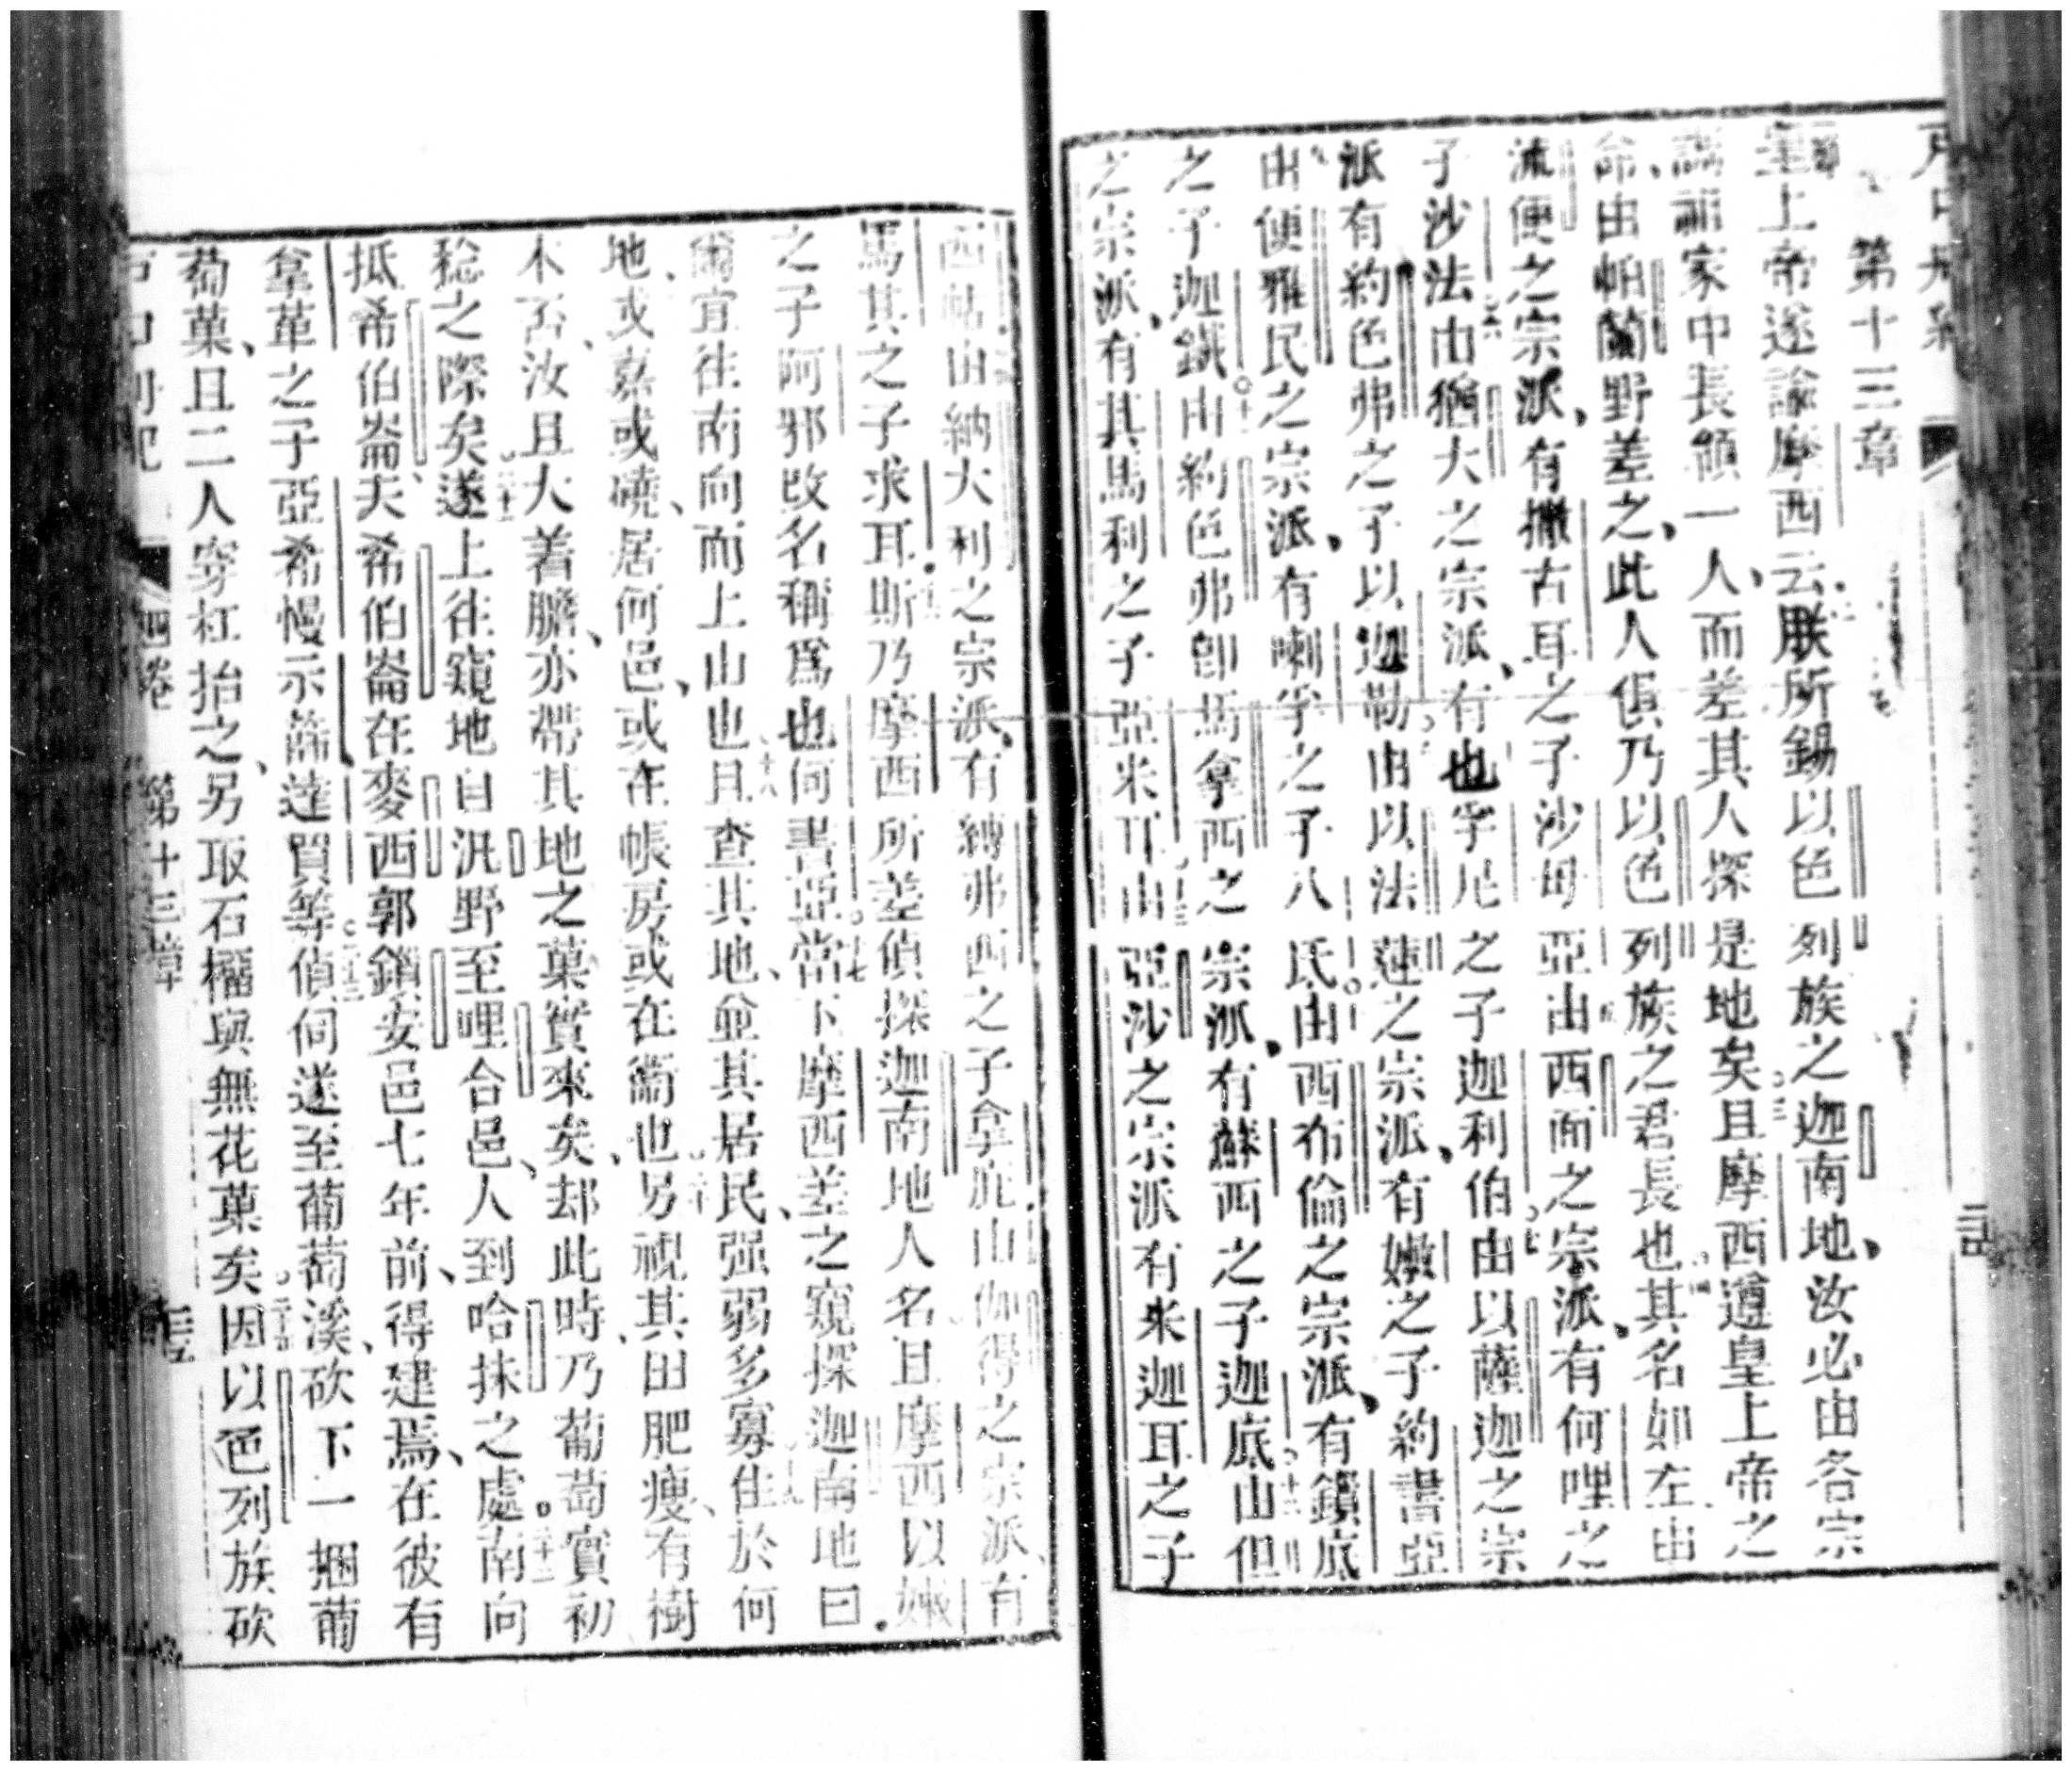 第十三章
皇上帝遂諭摩西云朕所錫以色列族之迦南地汝必由各宗
諸祖家中長領一人而差其人探是地矣且摩西遵皇上帝之
命由帕蘭野差之此人俱乃以色列族之君長也其名如左由
流便之宗派有撒古耳之子沙母亞由西面之宗派有何哩之
子沙法由猶大之宗派有也孚尼之子迦利伯由以薩迦之宗
派有約色弗之子以迦勒由以法蓮之宗派有嫩之子約書亞
由便雅民之宗派有喇孚之子八氐由西布倫之宗派有鎖底
之子迦鐵由約色弗卽馬拿西之宗派有蘇西之子迦底由但
之宗派有其馬利之子亞米耳由亞沙之宗派有米迦耳之子
西帖由納大利之宗派有縛弗西之子拿庇由伽得之宗派有
馬其之子求耳斯乃摩西所差偵探迦南地人名且摩西以嫩
之子阿邪改名稱爲也何書亞當下摩西差之窺探迦南地曰
爾宜往南向而上山也且查其地並其居民强弱多寡住於何
地或嘉或磽居何邑或在帳房或在衞也另視其田肥瘦有樹
木否汝且大着膽亦帶其地之菓實來矣却此時乃葡萄實初
稔之際矣遂上往窺地自汛野至哩合邑人到哈抹之處南向
抵希伯崙夫希伯崙在麥西郭鎖安邑七年前得建焉在彼有
拿革之子亞希慢示篩達買等偵伺遂至葡萄溪砍下一捆葡
萄菓且二人穿杠抬之另取石榴與無花菓矣因以色列族砍
戶口冊紀 四卷 第十三章